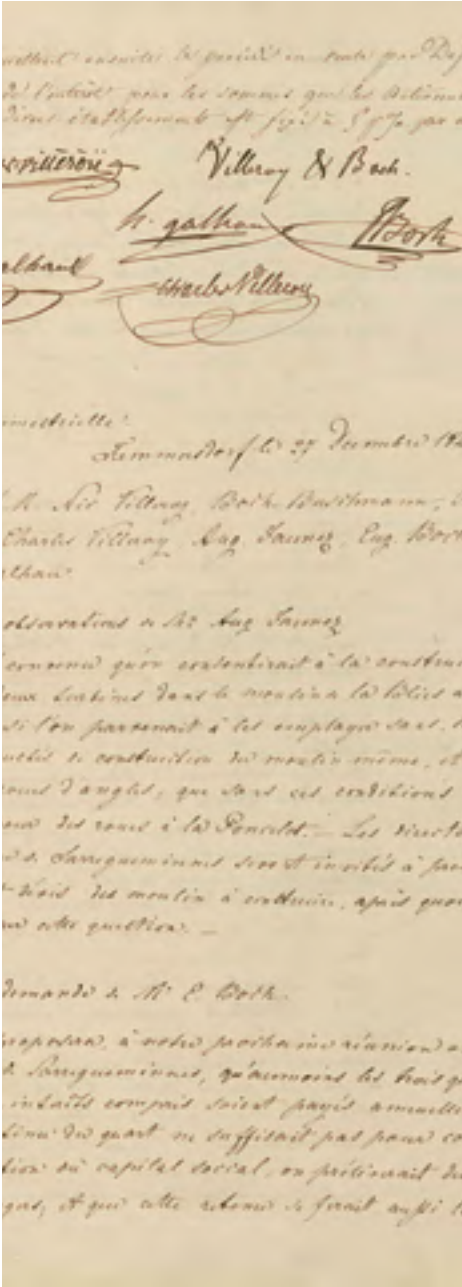 ensuite le procédé en vente par
de l'intérêt pour les sommes que les Actionn
divers établissements est fixé à 5 p% par a
Villeroy & Boch.
h. galhau Boch
alhau Charles Villeroy
imestrielle.
le 27 Decembre 18
Villeroy, Boch Buschmann,
Charles Villeroy, Aug. Jaunez, Eug. Boch
lhau.
observations de Mr Aug Jaunez
convenu qu'on consentirait à la construc
turbines dans le moulin a
si l'on parvenait à les employer sans
de construction du moulin même, et
roues d'angles, que sans ces conditions
des roues à la Poncelet. — Les directe
de Sarreguemines sont invités à
devis du moulin à construire, après quoi
cette question. —
demande de Mr E. Boch.
roposera, à notre prochaine réunion a
Sarreguemines, qu'aumoins les trois qu
intérêts compris soient payés annuelle
tenue du quart ne suffisait pas pour
tion du capital social, on
et que cette retenue se ferait aussi